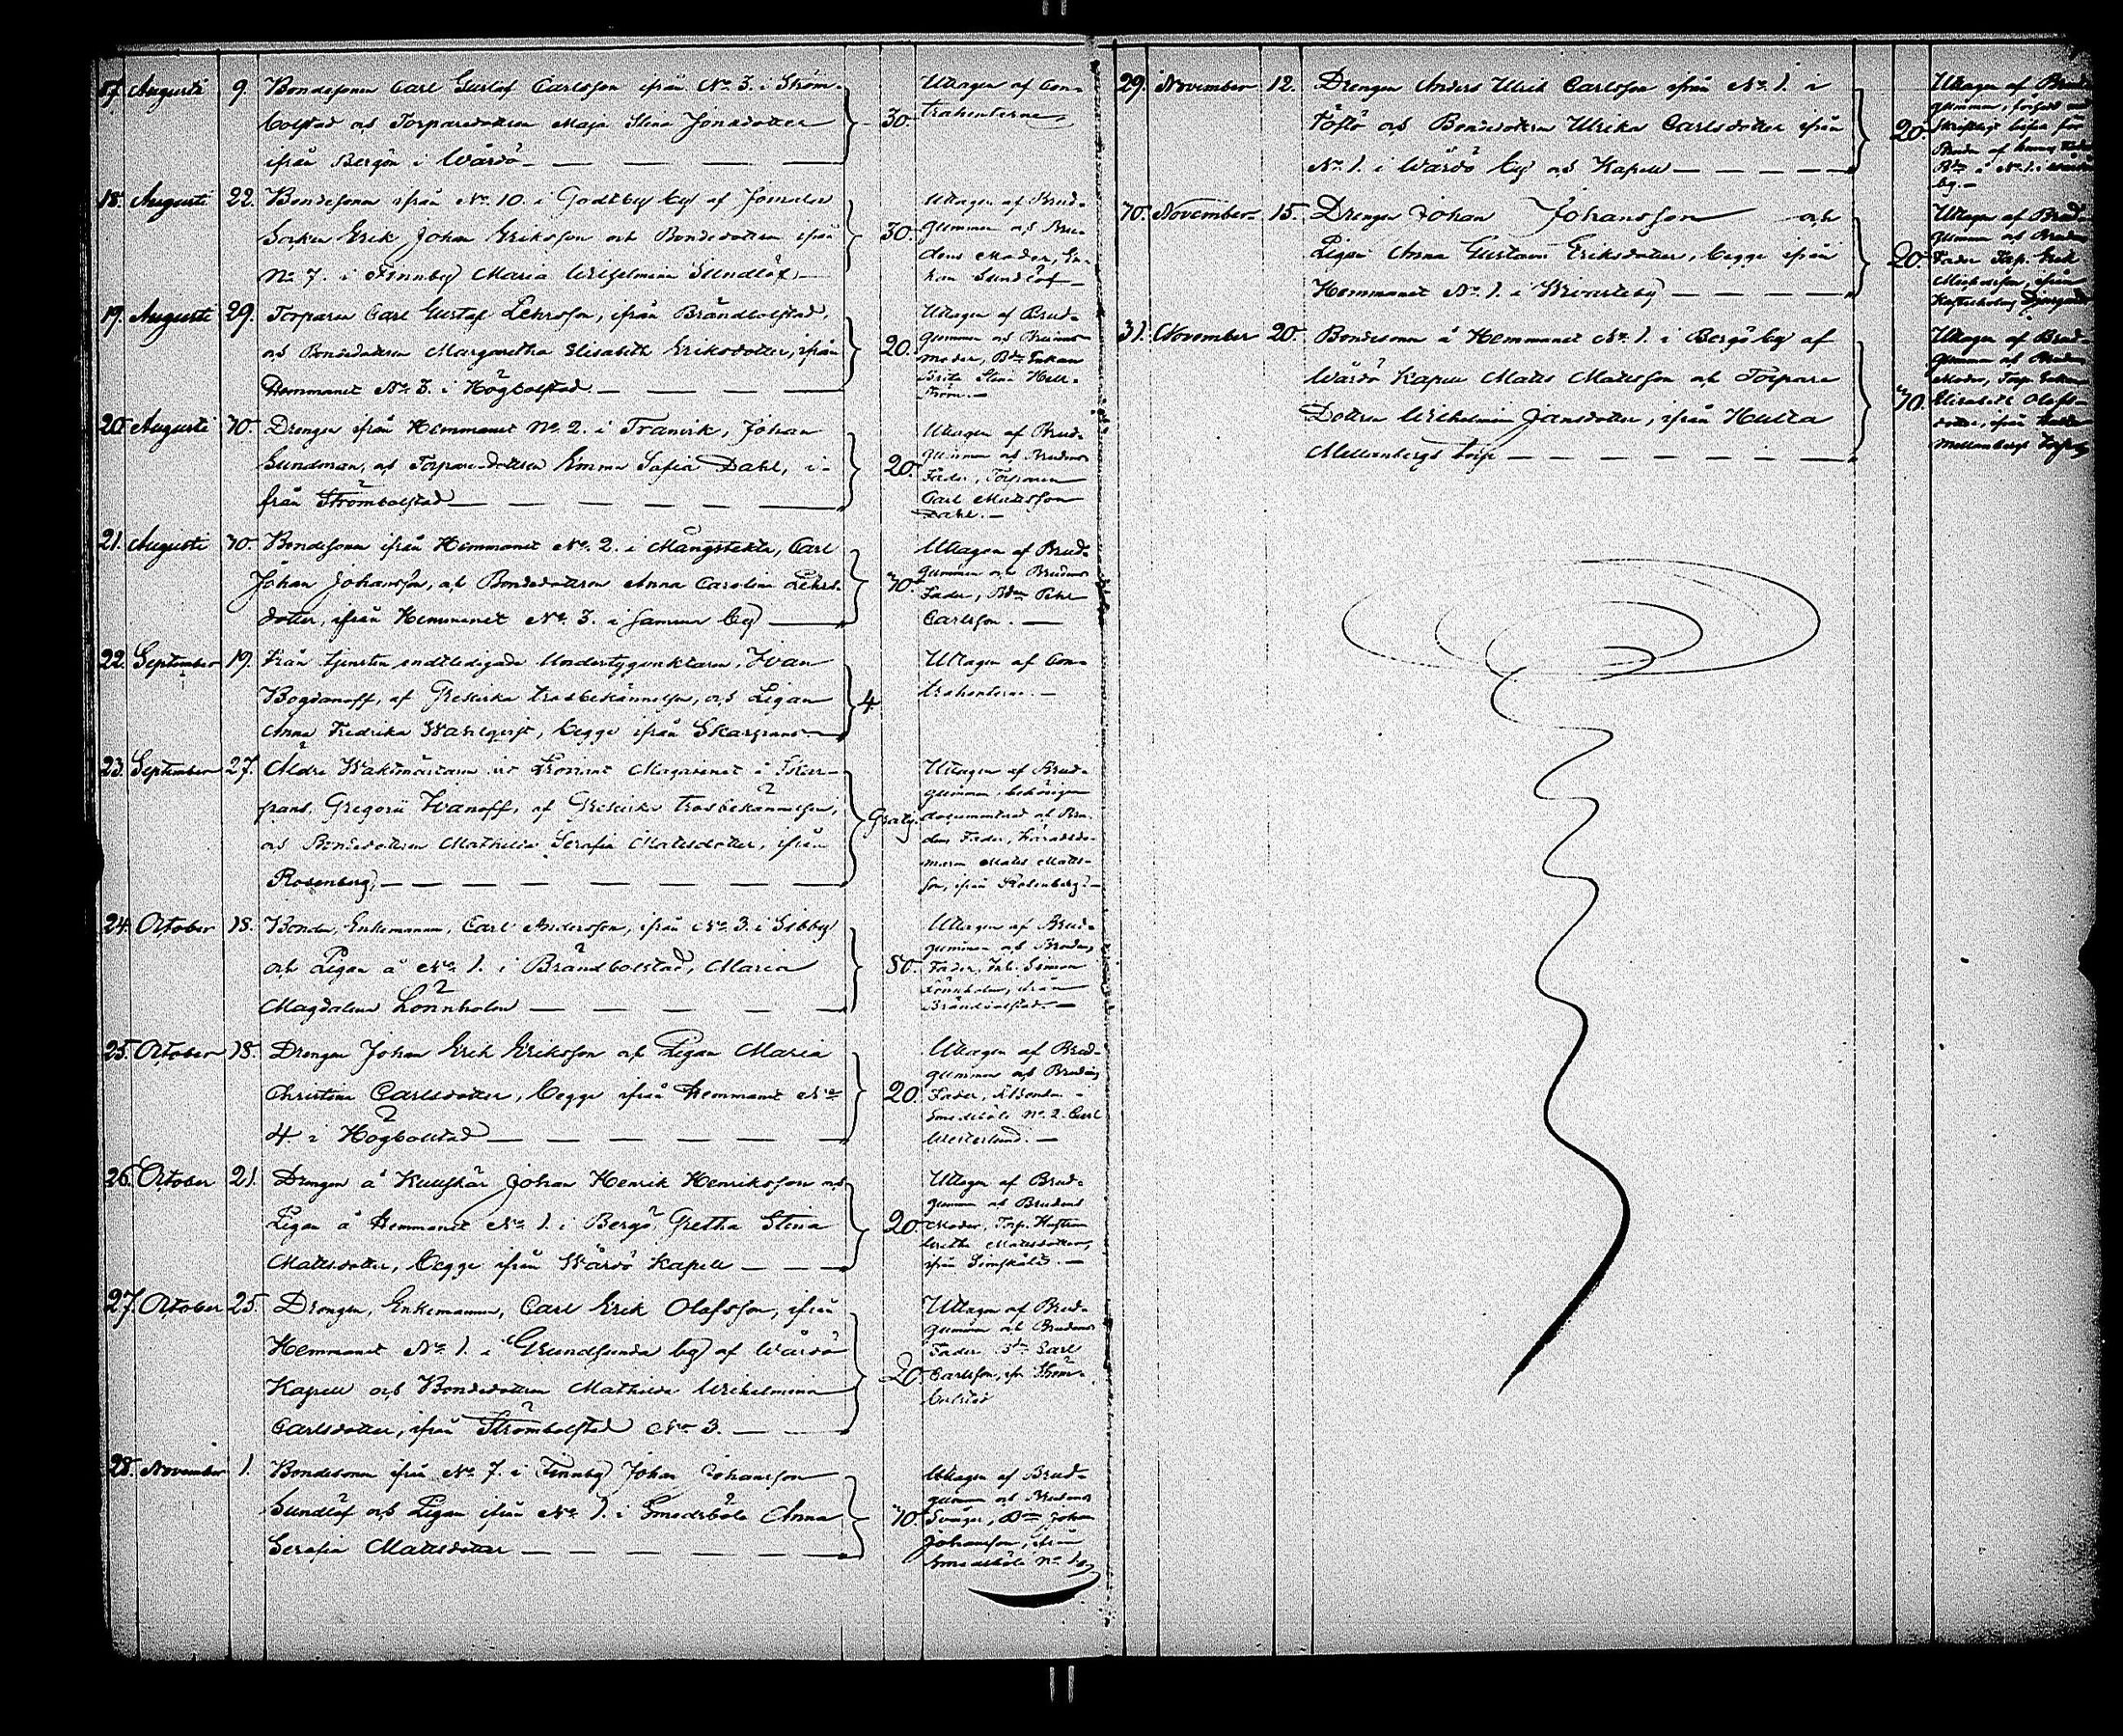 17. Augusti 9. Bondesonen Carl Gustaf Carlsson ifrån No 3. i Ström-
bolstad och Torparedottren Maja Stina Jonsdotter
ifrån Bergön i Wårdö
30.
Uttagen af Con-
trahenterne
18. Augusti 22. Bondesonen ifrån No 10. i Godtby by af Jomala
Socken Erik Johan Eriksson och Bondedottren ifrån
No 7. i Finnby Maria Wilhelmina Sundlöf
30.
Uttagen af Brud-
gummen och Bru-
dens Moder, En-
kan Sundlöf
19. Augusti 29. Torparen Carl Gustaf Lehrsson, ifrån Brändbolstad,
och Bondedottren Margaretha Elisabeth Eriksdotter, ifrån
Hemmanet No 3. i Högbolstad
20.
Uttagen af Brud-
gummen och
Moder, Bde Enkan
Brita Stina Hell-
ström.
20. Augusti 30. Drengen ifrån Hemmanet No 2. i Tranvik, Johan
Sundman, och Torparedottren Emma Sofia Dahl, i-
från Strömbolstad
20.
Uttagen af Brud-
gummen och Brudens
Fader, Torparen
Carl Matsson
Dahl.
21. Augusti 30. Bondesonen ifrån Hemmanet No 2. i Mångstekta, Carl
Johan Johansson, och Bondedottren Anna Carolina Lehrs-
dotter, ifrån Hemmanet No 3. i samma by
30.
Uttagen af Brud-
gummen och Brudens
Fader, Bden Pehr
Carlsson.
22. September 19. Från tjensten endtledigade Undertygvaktaren, Ivan
Bogdanoff, af Grekiska trosbekännelsen, och Pigan
Anna Fredrika Wahlqvist, begge ifrån Skarpans
4.
Uttagen af Con-
trahenterne.
23. September 27. Äldre Waktmästaren vid Proviant Magasinet i Skar-
pans, Gregorii Ivanoff, af Grekiska trosbekännelsen,
och Bondedottren Mathilda Serafia Matsdotter, ifrån
Rosenberg
Gratis.
Uttagen af Brud-
gummen, behörigen
documenterad och Bru-
dens Fader, Häradsdo-
maren Mats Mats-
son, ifrån Rosenberg.
24. October 18. Bonden, Enkemannen, Carl Andersson, ifrån No 3. i Sibby
och Pigan å No 1. i Brändbolstad, Maria
Magdalena Lönnholm
50.
Uttagen af Brud-
gummen och Brudens
Fader, Inh. Simon
Lönnholm, ifrån
Brändbolstad.
25. October 18. Drengen Johan Erik Eriksson och Pigan Maria
Christina Carlsdotter, begge ifrån Hemmanet No
4 i Högbolstad
20.
Uttagen af Brud-
gummen och Brudens
Fader,
Smedsböle No 2. Carl
Westerlund.
26. October 21. Drengen å Kullskär Johan Henrik Henriksson och
Pigan å Hemmanet No 1. i Bergö, Gretha Stina
Matsdotter, begge ifrån Wårdö Kapell
20.
Uttagen af Brud-
gummen och Brudens
Moder, Torp. Hustrun
Gretha Matsdotter,
ifrån Simskäla.
27. October 25. Drengen, Enkemannen, Carl Erik Olofsson, ifrån
Hemmanet No 1. i Grundsunda by af Wårdö
Kapell och Bondedottren Mathilda Wilhelmina
Carlsdotter, ifrån Strömbolstad No 3.
20.
Uttagen af Brud-
gummen och Brudens
Fader Bden Carl
Carlsson, ifrn Ström-
bolstad
28. November 1. Bondesonen ifrån No 7. i Finnby Johan Johansson
Sundlöf och Pigan ifrån No 1. i Smedsböle Anna
Serafia Matsdotter
30.
Uttagen af Brud-
gummen och Brudens
Svåger, Bden Johan
Johansson, ifrån
Smedsböle No 1.
29. November 12. Drengen Anders Ulrik Carlsson ifrån No 1. i
Töftö och Bondedottren Ulrika Carlsdotter ifrån
No 1. i Wårdö by och Kapell
20.
Uttagen af Brud-
gummen, försedd med
skriftligt bifall för
Bruden af hennes Fader
Bden å No 1. i Wårdö
by.
30. November 15. Drengen Johan Johansson och
Pigan Anna Gustava Eriksdotter, begge ifrån
Hemmanet No 1. i Kvarnby
20.
Uttagen af Brud-
gummen och Brudens
Fader Torp. Erik
Michelsson, ifrån
31. November 20. Bondesonen å Hemmanet No 1. i Bergö by af
Wårdö Kapell Mats Matsson och Torpare
Dottren Wilhelmina Jansdotter, ifrån Hulta
Mellanbergs torp
30.
Uttagen af Brud-
gummen och Brudens
Moder, Torp. Enkan
Elisabeth Olofs-
dotter, ifrån Hulta
Mellanbergs torp